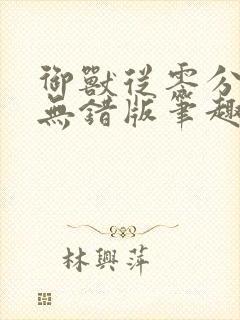 御獸從零分
無錯版筆趣
林興萍